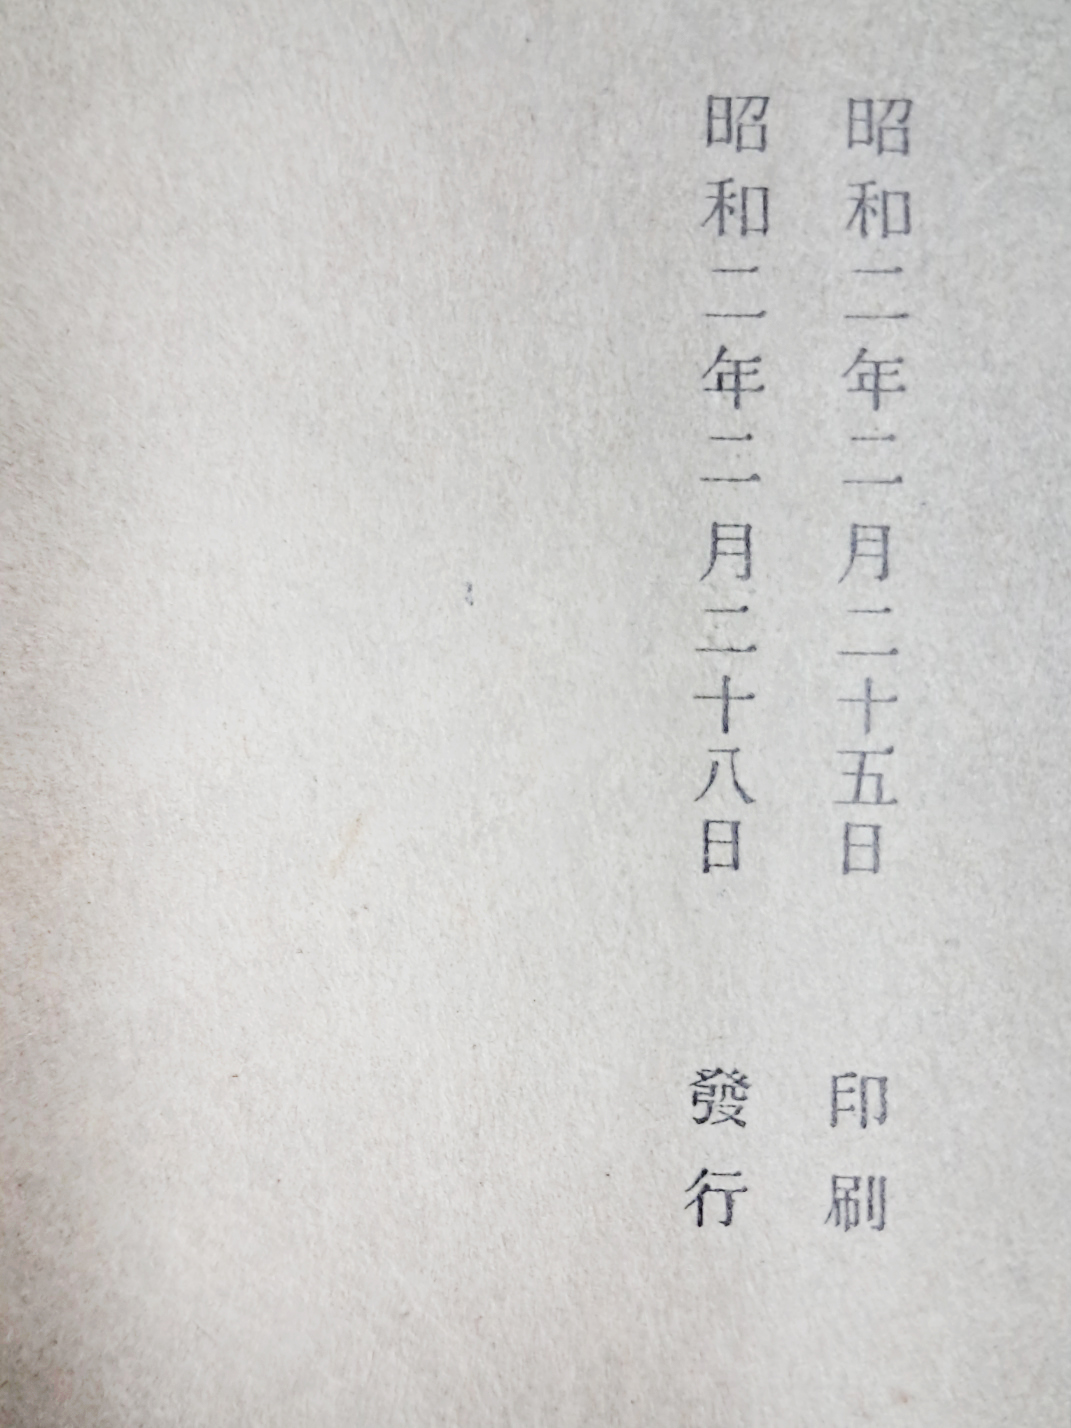 昭和二年二月二十五日 印刷
昭和二年二月二十八日 發行